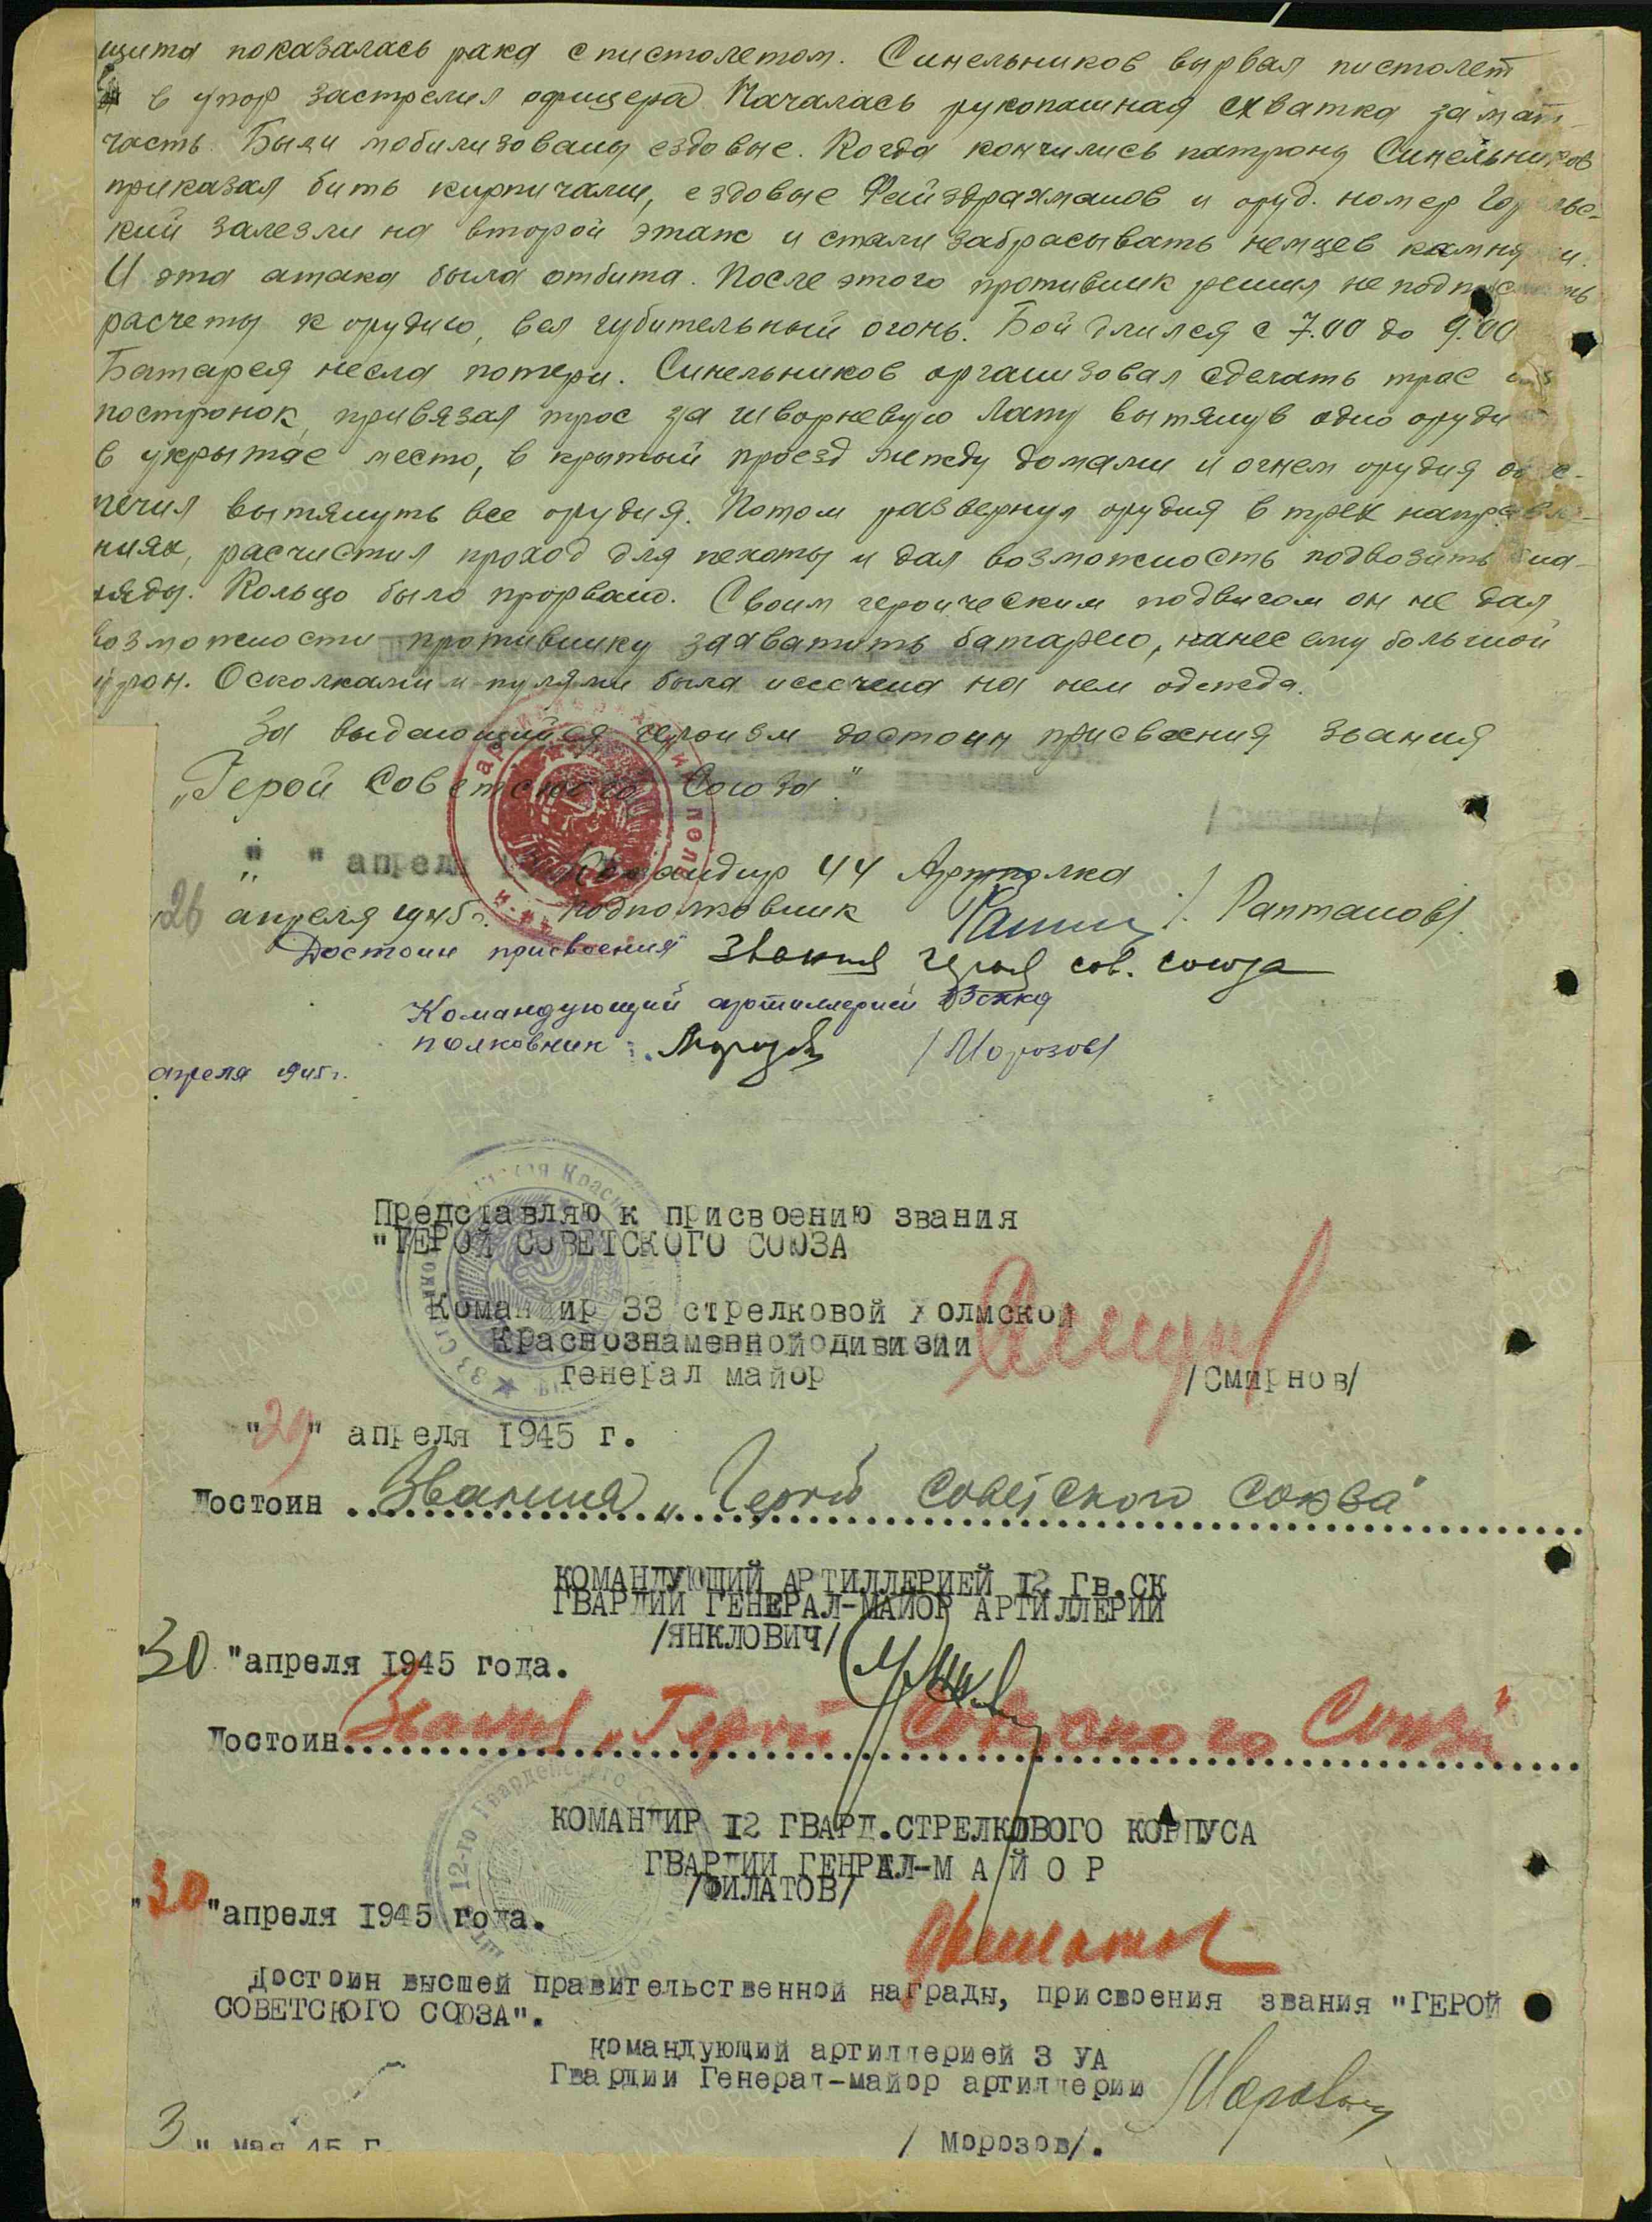 щита показалась рака с пистолетом. Синельников вырвал пистолет
в упор застрелил офицера. Началась рукопашная схватка за мат-
часть. Были мобилизованы ездовые. Когда кончились патроны Синельников
приказал бить кирпичами, ездовые Файздрахманов и оруд. номер
кий залезли на второй этаж и стали забрасывать немцев
И эта атака была отбита. После этого противник решил не
расчеты к орудию, вел губительный огонь. Бой длился с 7.00 до 9.00
Батарея несла потери. Синельников организовал сделать трос
постронок, привязал трос за шворневую лапу вытянув одно оруди
в укрытае место, в крытый проезд между домами и огнем орудия обес-
печил вытянуть все орудия. Потом развернул орудия в трех направле-
ниях, расчистил проход для пехоты и дал возможность подвозить сна-
ряды. Кольцо было прорвано. Своим героическим подвигом он не дал
возможности противнику захватить батарею, нанес ему большой
урон. Осколками и пулями была иссечена на нем одежда.
За выдающийся героизм достоин присвоения звания
„Герой Советского Союза"
" " апреля
Командир 44 Артполка
26 апреля 1945 г. подполковник / Раптанов/.
Достоин присвоения звания героя сов. союза
Командующий артиллерией 33 скка
полковник: /Морозов/
апреля 1945 г.
Представляю к присвоению звания
"ГЕРОЙ СОВЕТСКОГО СОЮЗА
Командир 33 стрелковой Холмской
Краснознаменной дивизии
генерал майор /Смирнов/
"29" апреля 1945 г.
Достоин Звания „Герой Советского Союза"
КОМАНДУЮЩИЙ АРТИЛЛЕРИЕЙ 12 Гв.СК
ГВАРДИИ ГЕНЕРАЛ-МАЙОР АРТИЛЛЕРИИ
/ЯНКЛОВИЧ/
30 "апреля 1945 года.
Достоин Звания „Герой Советского Союза"
КОМАНДИР 12 ГВАРД.СТРЕЛКОВОГО КОРПУСА
ГВАРДИИ ГЕНРАЛ-М А Й О Р
/ФИЛАТОВ/
"30"апреля 1945 года.
Достоин высшей правительственной награды, присвоения звания "ГЕРОЙ
СОВЕТСКОГО СОЮЗА".
командующий артиллерией 3 УА
Гвардии Генерал-майор артиллерии
3 " мая 45 г.
/ Морозов/.